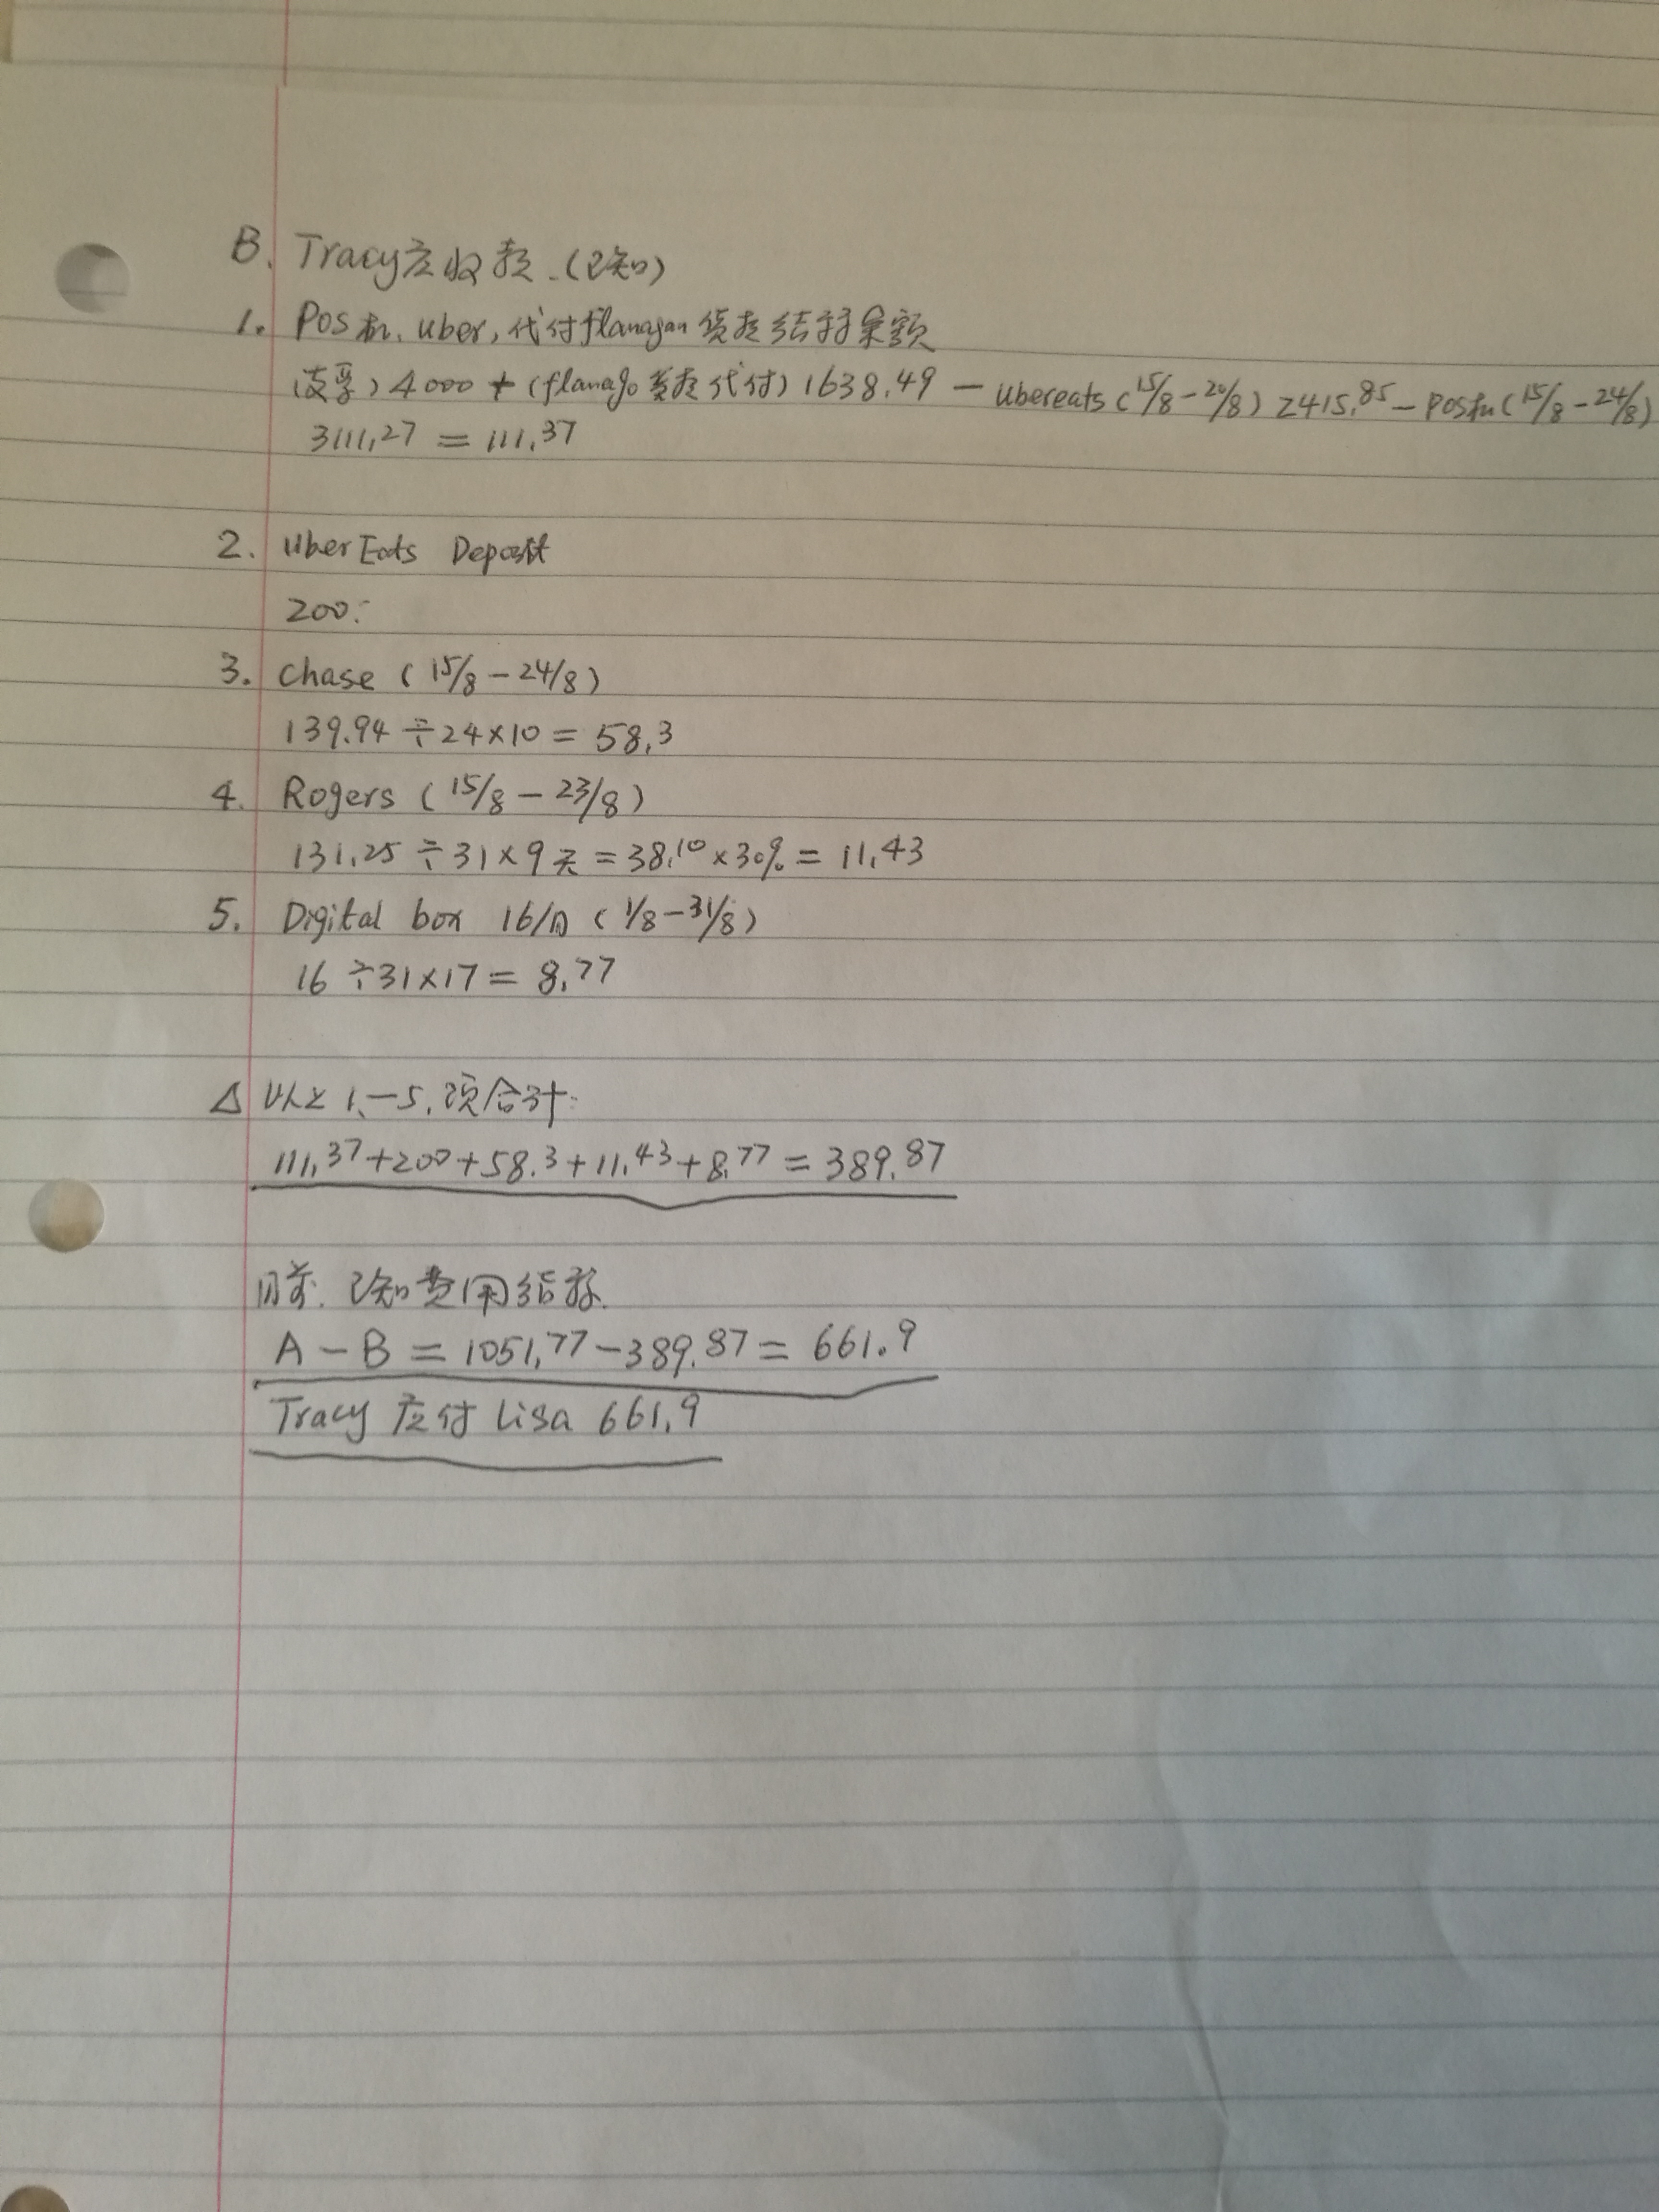 B. Tracy应收款.(已知)
1. Pos机, uber, 代付flanagan货款结标余额
(支票) 4000 + (flanago货款代付) 1638.49 - ubereats (15/8-20/8) 2415.85 - pos机 (15/8-24/8)
3111.27 = 111.37
2. uberEats Deposit
200.
3. Chase (15/8-24/8)
139.94 ÷24×10 = 58.3
4. Rogers (15/8-23/8)
131.25 ÷31×9天 = 38.10×30% = 11.43
5. Digital box 16/月 (1/8-31/8)
16 ÷31×17 = 8.77
△ 以上 1.-5. 项合计:
111.37+200+58.3+11.43+8.77 = 389.87
目前. 已知费用结标.
A - B = 1051.77-389.87 = 661.9
Tracy 应付 Lisa 661.9